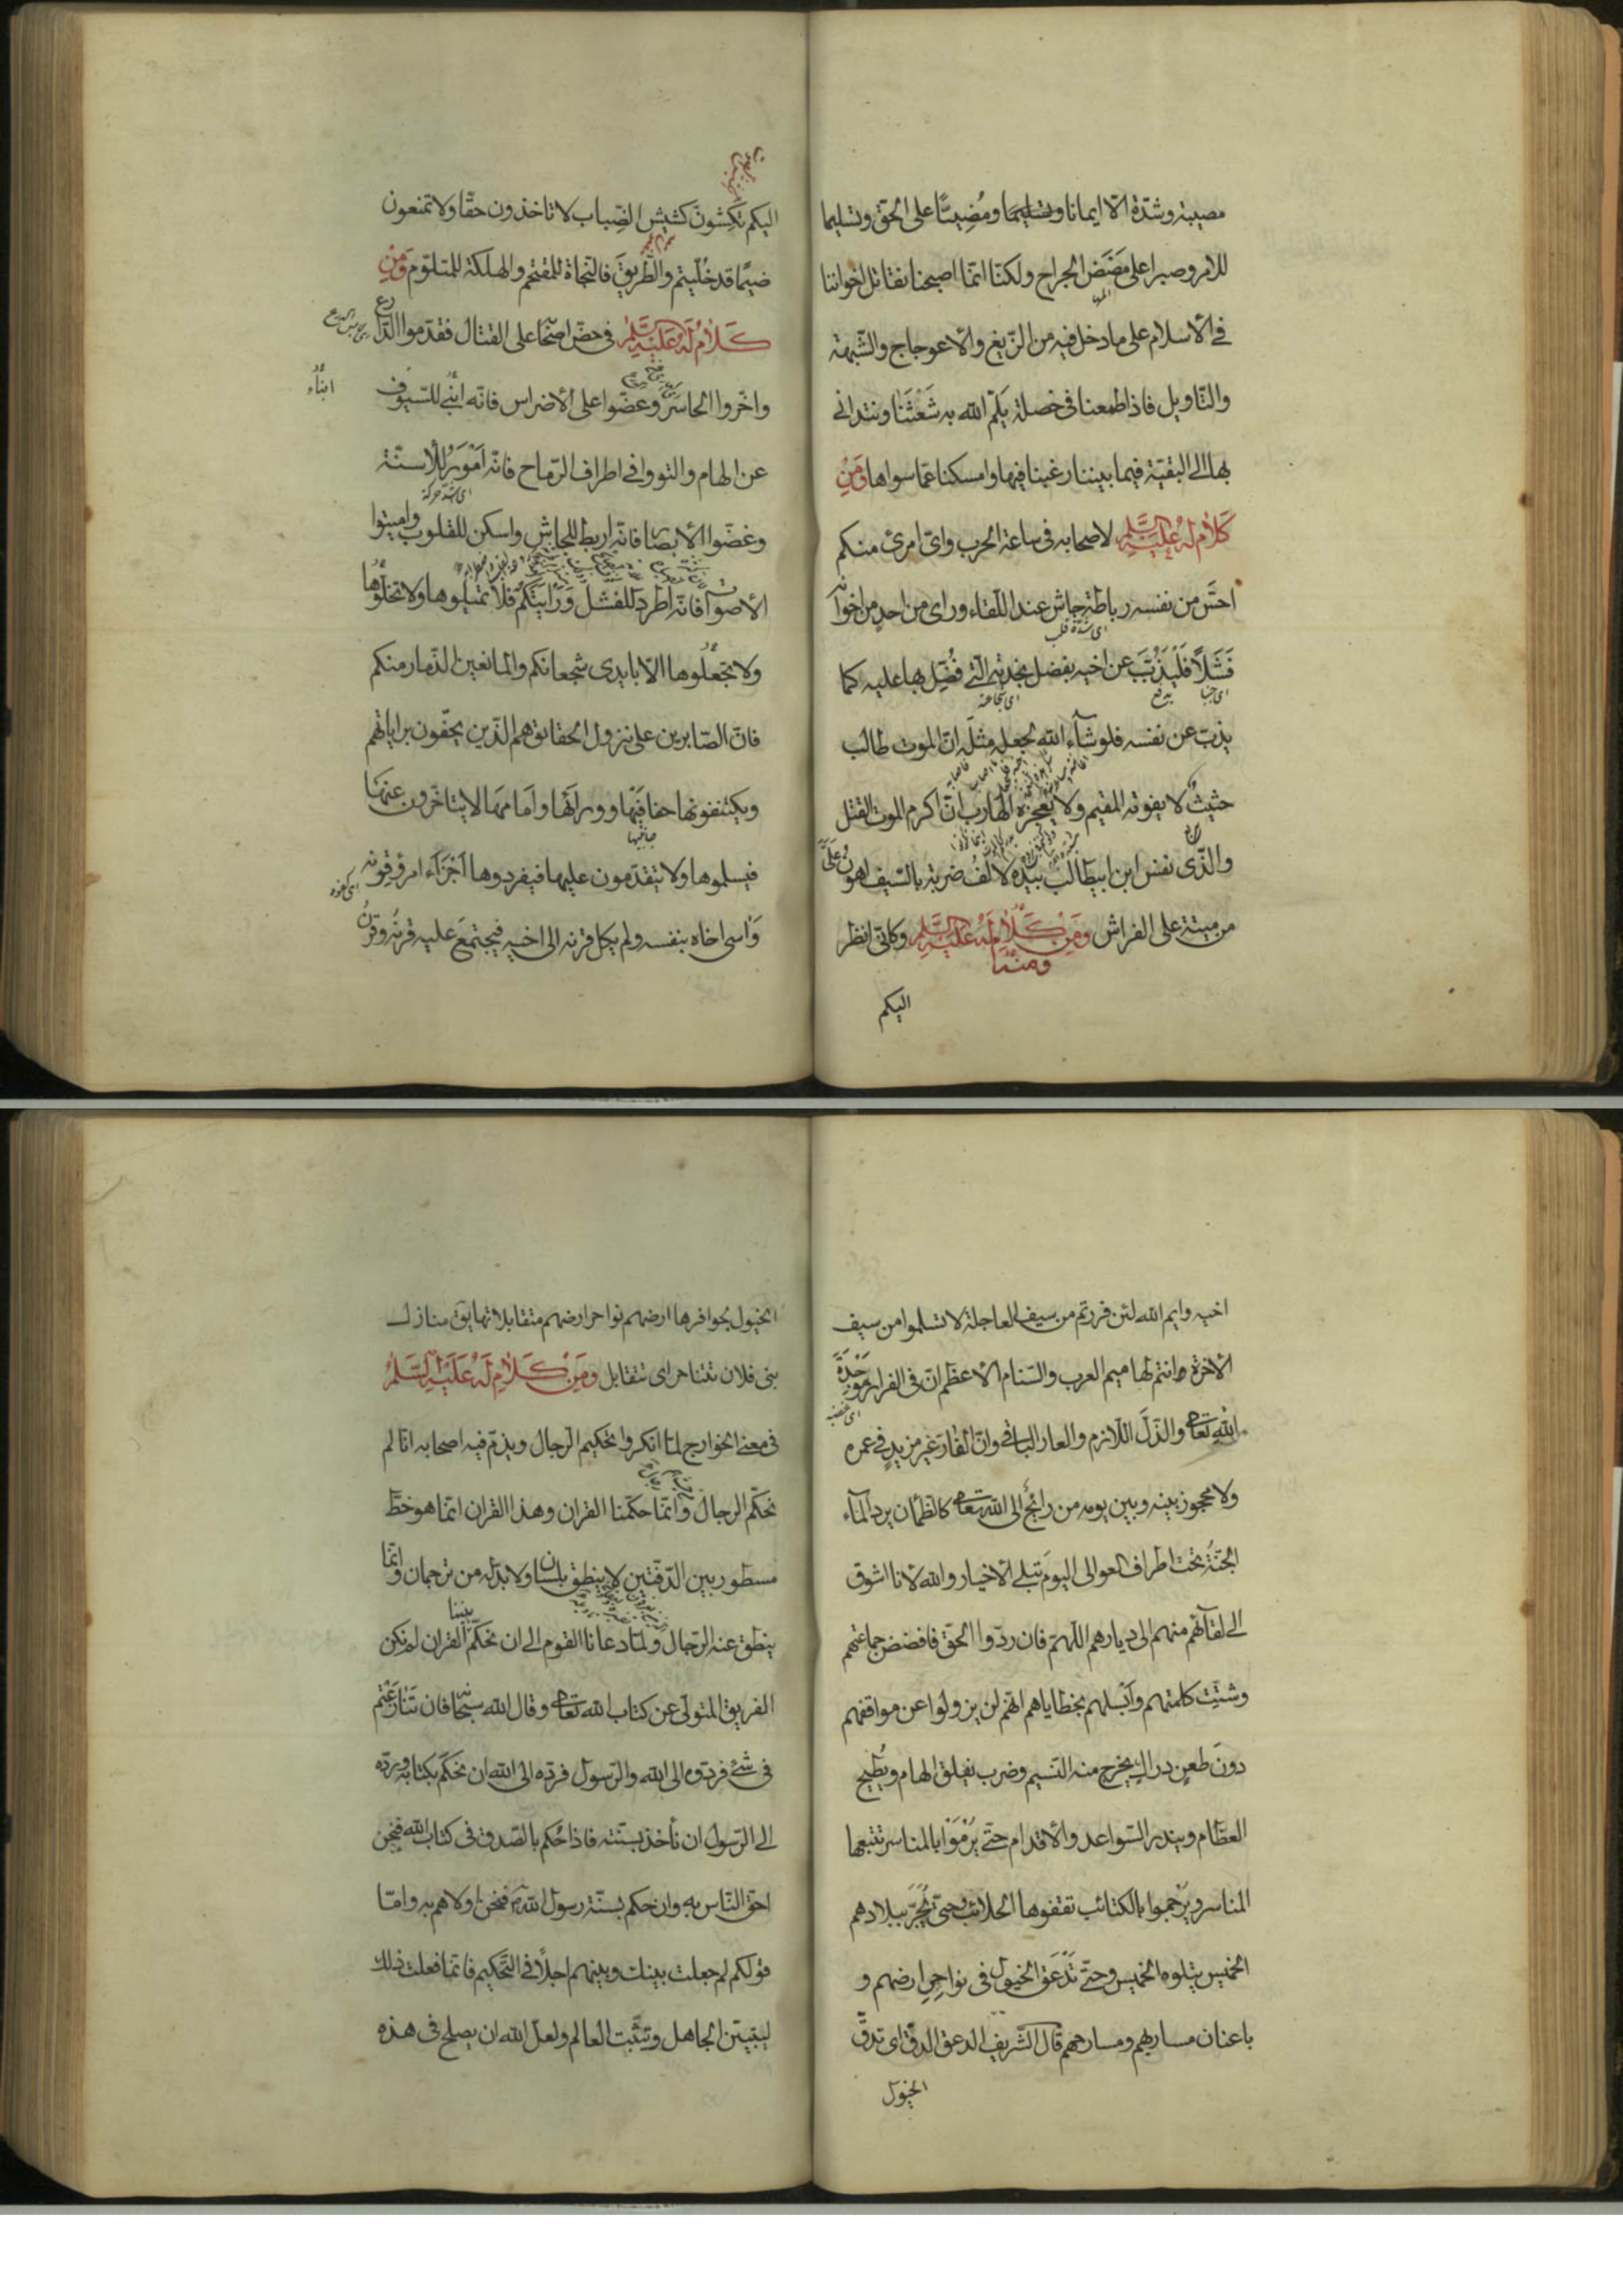 مصيبة وشدّة الّا ايمانا ومُضِيّاً على الحقّ وتسليما
للامر وصبرا على مَضَضِ الجراح ولكنّا انّما اصبحنا نقاتل اخواننا
فى الأسلام على ما دخل فيه من الزّيغ والأعوجاج والشّبهة
والتّأويل فاذا طمعنا فى خصلة يَلُمّ الله به شَعَثَنا ونتدانى
بها الى البقيّة فيما بيننا رغبنا فيها وامسكنا عمّا سواها وَمِنْ
كَلامٍ لَهُ عَلَيْهِ السَّلَم لاصحابه فى ساعة الحرب واىّ امرئ منكم
احسَّ من نفسه رباطة جاش عند اللّقاء وراى من احدٍ من اخوانه
فَشَلاً فَلْيَذُبَّ عن اخيه بفضل نجدته الّتى فُضِّل بها عليه كما
يذبّ عن نفسه فلو شآء الله لجعله مثلَه انّ الموت طالب
حثيثٌ لا يفوته المقيم ولا يُعجزه الهارب انّ اكرم الموت القتل
والّذى نفس ابن ابيطالب بيده لالفُ ضربة بالسّيف اهونُ عَلَىَّ
من ميتة على الفراش وَمِنْ كَلامٍ لَهُ عَلَيْهِ السَّلَم وكانّى انظر
ومنها
اليكم
اليكم تكشّون كشيش الضّباب لا تاخذون حقّا ولا تمنعون
ضيمًا قد خُلّيتم والطّريقَ فالنجاة للمقتحم والهلكة للمتلوّم وَمِنْ
كَلامٍ لَهُ عَلَيْهِ السَّلَم فى حضّ اصحابه على القتال فقدّموا الدّارع
واخّروا الحاسر وعضّوا على الأضراس فانّه انبى للسّيوف
عن الهام والتووا فى اطراف الرّماح فانّه اَمْوَرُ للأسنّة
وغضّوا الأبصار فانّه اربط للجاش واسكن للقلوب واميتوا
الأصوات فانّه اطرد للفشل وَرَايَتَكم فلا تميلوها ولا تخلّوها
ولا تجعلوها الّا بايدى شجعانكم والمانعين الذّمار منكم
فانّ الصّابرين على نزول الحقائق هم الّذين يحفّون براياتهم
ويكتنفونها حفافَيْها وورآئها وامامها لا يتاخّرون عنها
فيسلموها ولا يتقدّمون عليها فيفردوها اَجْزَآء امرؤ قِرنه
وَاسى اخاه بنفسه ولم يكل قرنه الى اخيه فيجتمعَ عليه قِرنُه وقِرنُ
اخيه وايم الله لئن فررتم من سيف العاجلة لا تسلموا من سيف
الأخرة وانتم لهاميم العرب والسّنام الأعظم انّ فى الفرار مَوْجِدَةَ
اللهِ تعالى والذّلَّ اللّازم والعار الباقى وانّ الفارّ غير مزيدٍ فى عمره
ولا محجوز بينه وبين يومه من رائحٌ الى الله تعالى كالظّمآن يرد المآء
الجنّةُ تحت اطراف العوالى اليومَ تبلى الأخبار والله لأنا اشوق
الى لقآئهم منهم الى ديارهم اللّهمّ فان ردّوا الحقّ فافضض جماعتهم
وشتّت كلمتهم وَاَبْسِلهم بخطاياهم انّهم لن يزولوا عن مواقفهم
دونَ طعنٍ دراكٍ يخرج منه النّسيم وضربٍ يفلق الهام ويُطيح
العظام ويندر السّواعد والأقدام حتّى يُرْمَوْا بالمناسر تتبعها
المناسر ويُرْجموا بالكتائب تقفوها الحلائب وحتى يُجَرَّ ببلادهم
الخميس يتلوه الخميس وحتّى تَدْعَقَ الخيول فى نواحِرِ ارضهم و
باعنان مساربهم ومسارحهم قال الشّريف الدعق الدقّ اى تدقّ
الخيول
الخيول بحوافرها ارضهم نواحر ارضهم متقابلاتها يق منازل
بنى فلان تتناحر اى تتقابل وَمِنْ كَلامٍ لَهُ عَلَيْهِ السَّلَم
فى معنى الخوارج لمّا انكروا تحكيم الرّجال ويذمّ فيه اصحابه انّا لم
نحكّم الرجال وانّما حكّمنا القران وهذا القران انّما هو خطّ
مسطور بين الدّفّتين لا ينطق بلسان ولا بدّ له من ترجمان وانّما
ينطق عنه الرّجال ولمّا دعانا القوم الى ان نحكّم بيننا القران لم نكن
الفريق المتولّى عن كتاب الله تعالى وقال الله سبحانه فان تَنازعتم
فى شئ فردّوه الى الله والرّسول فردّه الى الله ان نحكّم بكتابه وردّه
الى الرّسول ان نأخذ بسنّته فاذا حُكم بالصّدق فى كتاب الله فنحن
احقّ النّاس به وان حكم بسنّة رسول الله فنحن اولاهم به وامّا
قولكم لم جعلت بينك وبينهم اجلاً فى التّحكيم فانّما فعلت ذلك
ليتبيّن الجاهل وتثبّت العالم ولعلّ الله ان يصلح فى هذه